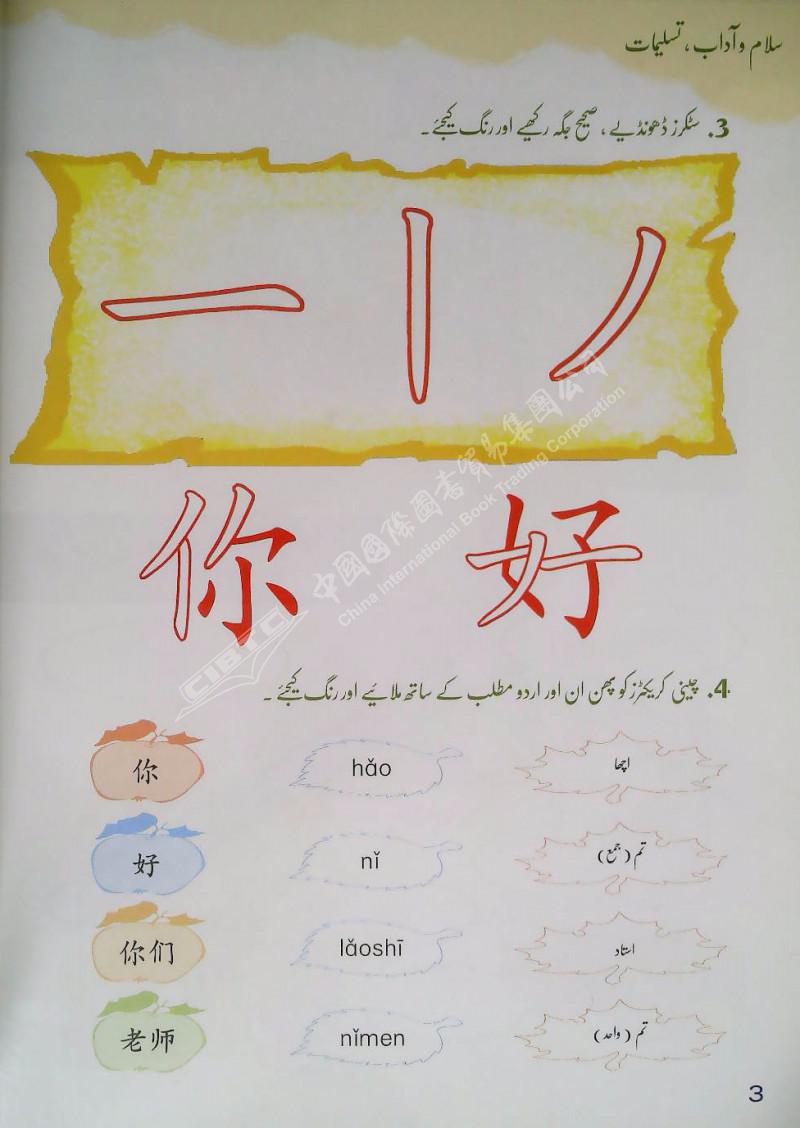 سلام و آداب ، تسلیمات
3. سٹکرز ڈھونڈیے ، صحیح جگہ رکھیے اور رنگ کیجئے ۔
一 丨 丿
中國國際圖書貿易集團公司
China International Book Trading Corporation
CIBTC
你 好
4. چینی کریکٹرز کو پھن ان اور اردو مطلب کے ساتھ ملائیے اور رنگ کیجئے ۔
你 hǎo اچھا
好 nǐ تم (جمع)
你们 lǎoshī استاد
老师 nǐmen تم (واحد)
3